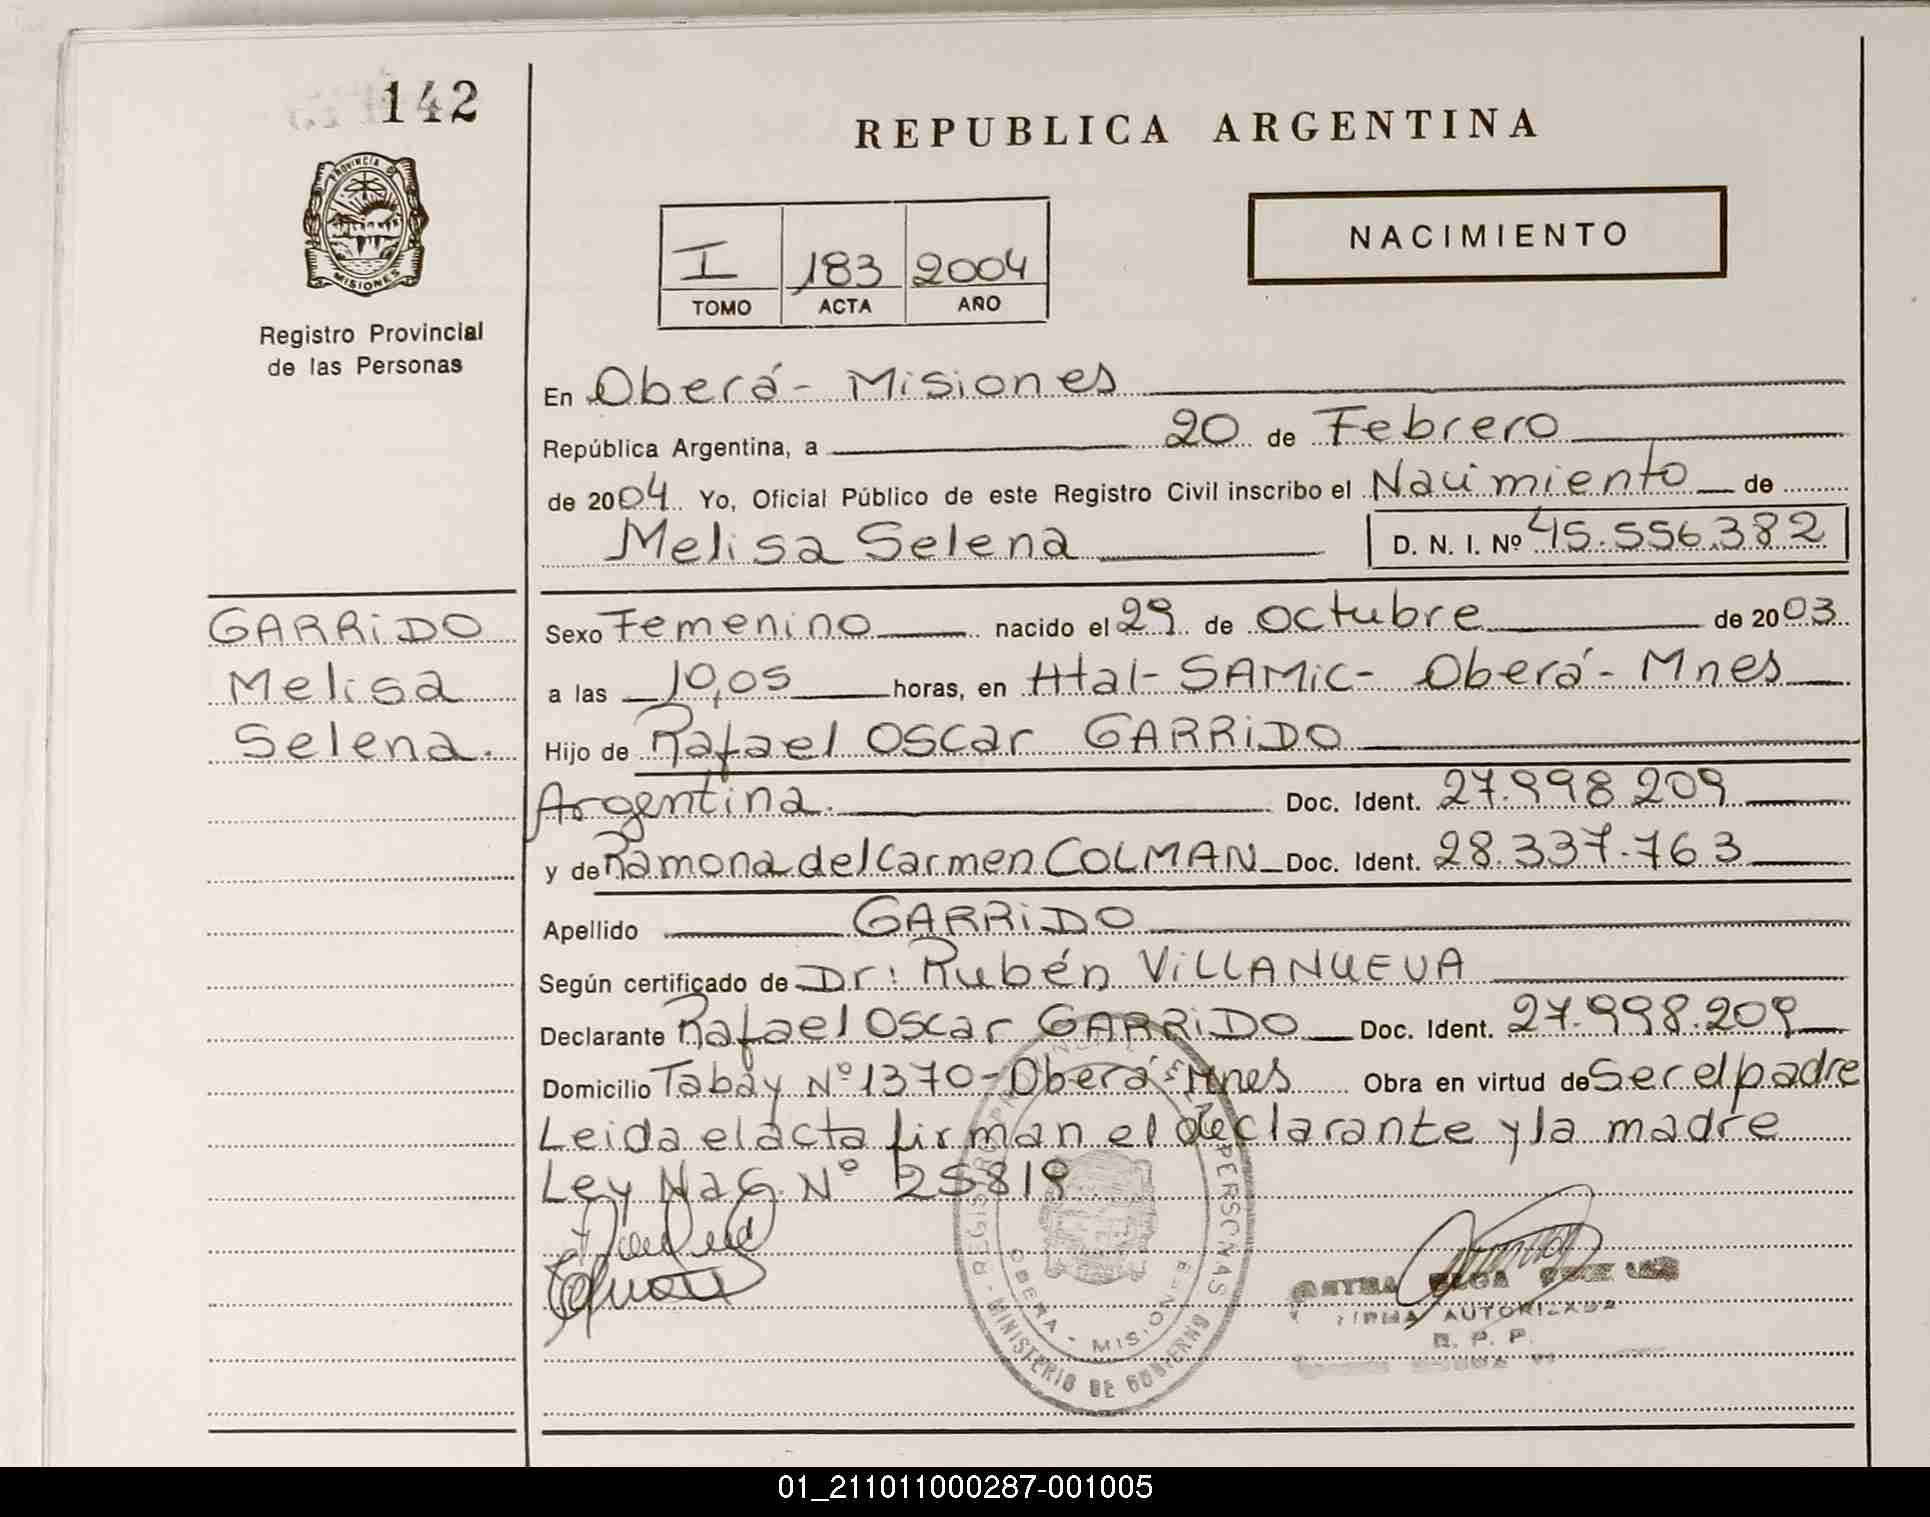 142
PROVINCIA DE
MISIONES
Registro Provincial
de las Personas
REPUBLICA ARGENTINA
NACIMIENTO
I 183 2004
TOMO ACTA AÑO
En Oberá - Misiones
República Argentina, a 20 de Febrero
de 2004 Yo, Oficial Público de este Registro Civil inscribo el Nacimiento de
Melisa Selena D. N. I. Nº 45.556.382
GARRIDO
Melisa
Selena.
Sexo Femenino nacido el 29 de octubre de 2003
a las 10,05 horas, en Htal - SAMIC - Oberá - Mnes
Hijo de Rafael Oscar GARRIDO
Argentina. Doc. Ident. 27.998.209
y de Ramona del Carmen COLMAN Doc. Ident. 28.337.763
Apellido GARRIDO
Según certificado de Dr: Rubén VILLANUEVA
Declarante Rafael Oscar GARRIDO Doc. Ident. 27.998.209
Domicilio Tabay Nº 1370 - Oberá - Mnes Obra en virtud de Ser el padre
Leida el acta firman el declarante y la madre
Ley Nac. Nº 25819
PERSONAS
OBERA - MISIONES
MINISTERIO DE GOBIERNO
FIRMA AUTORIZADA
R. P. P.
01_211011000287-001005